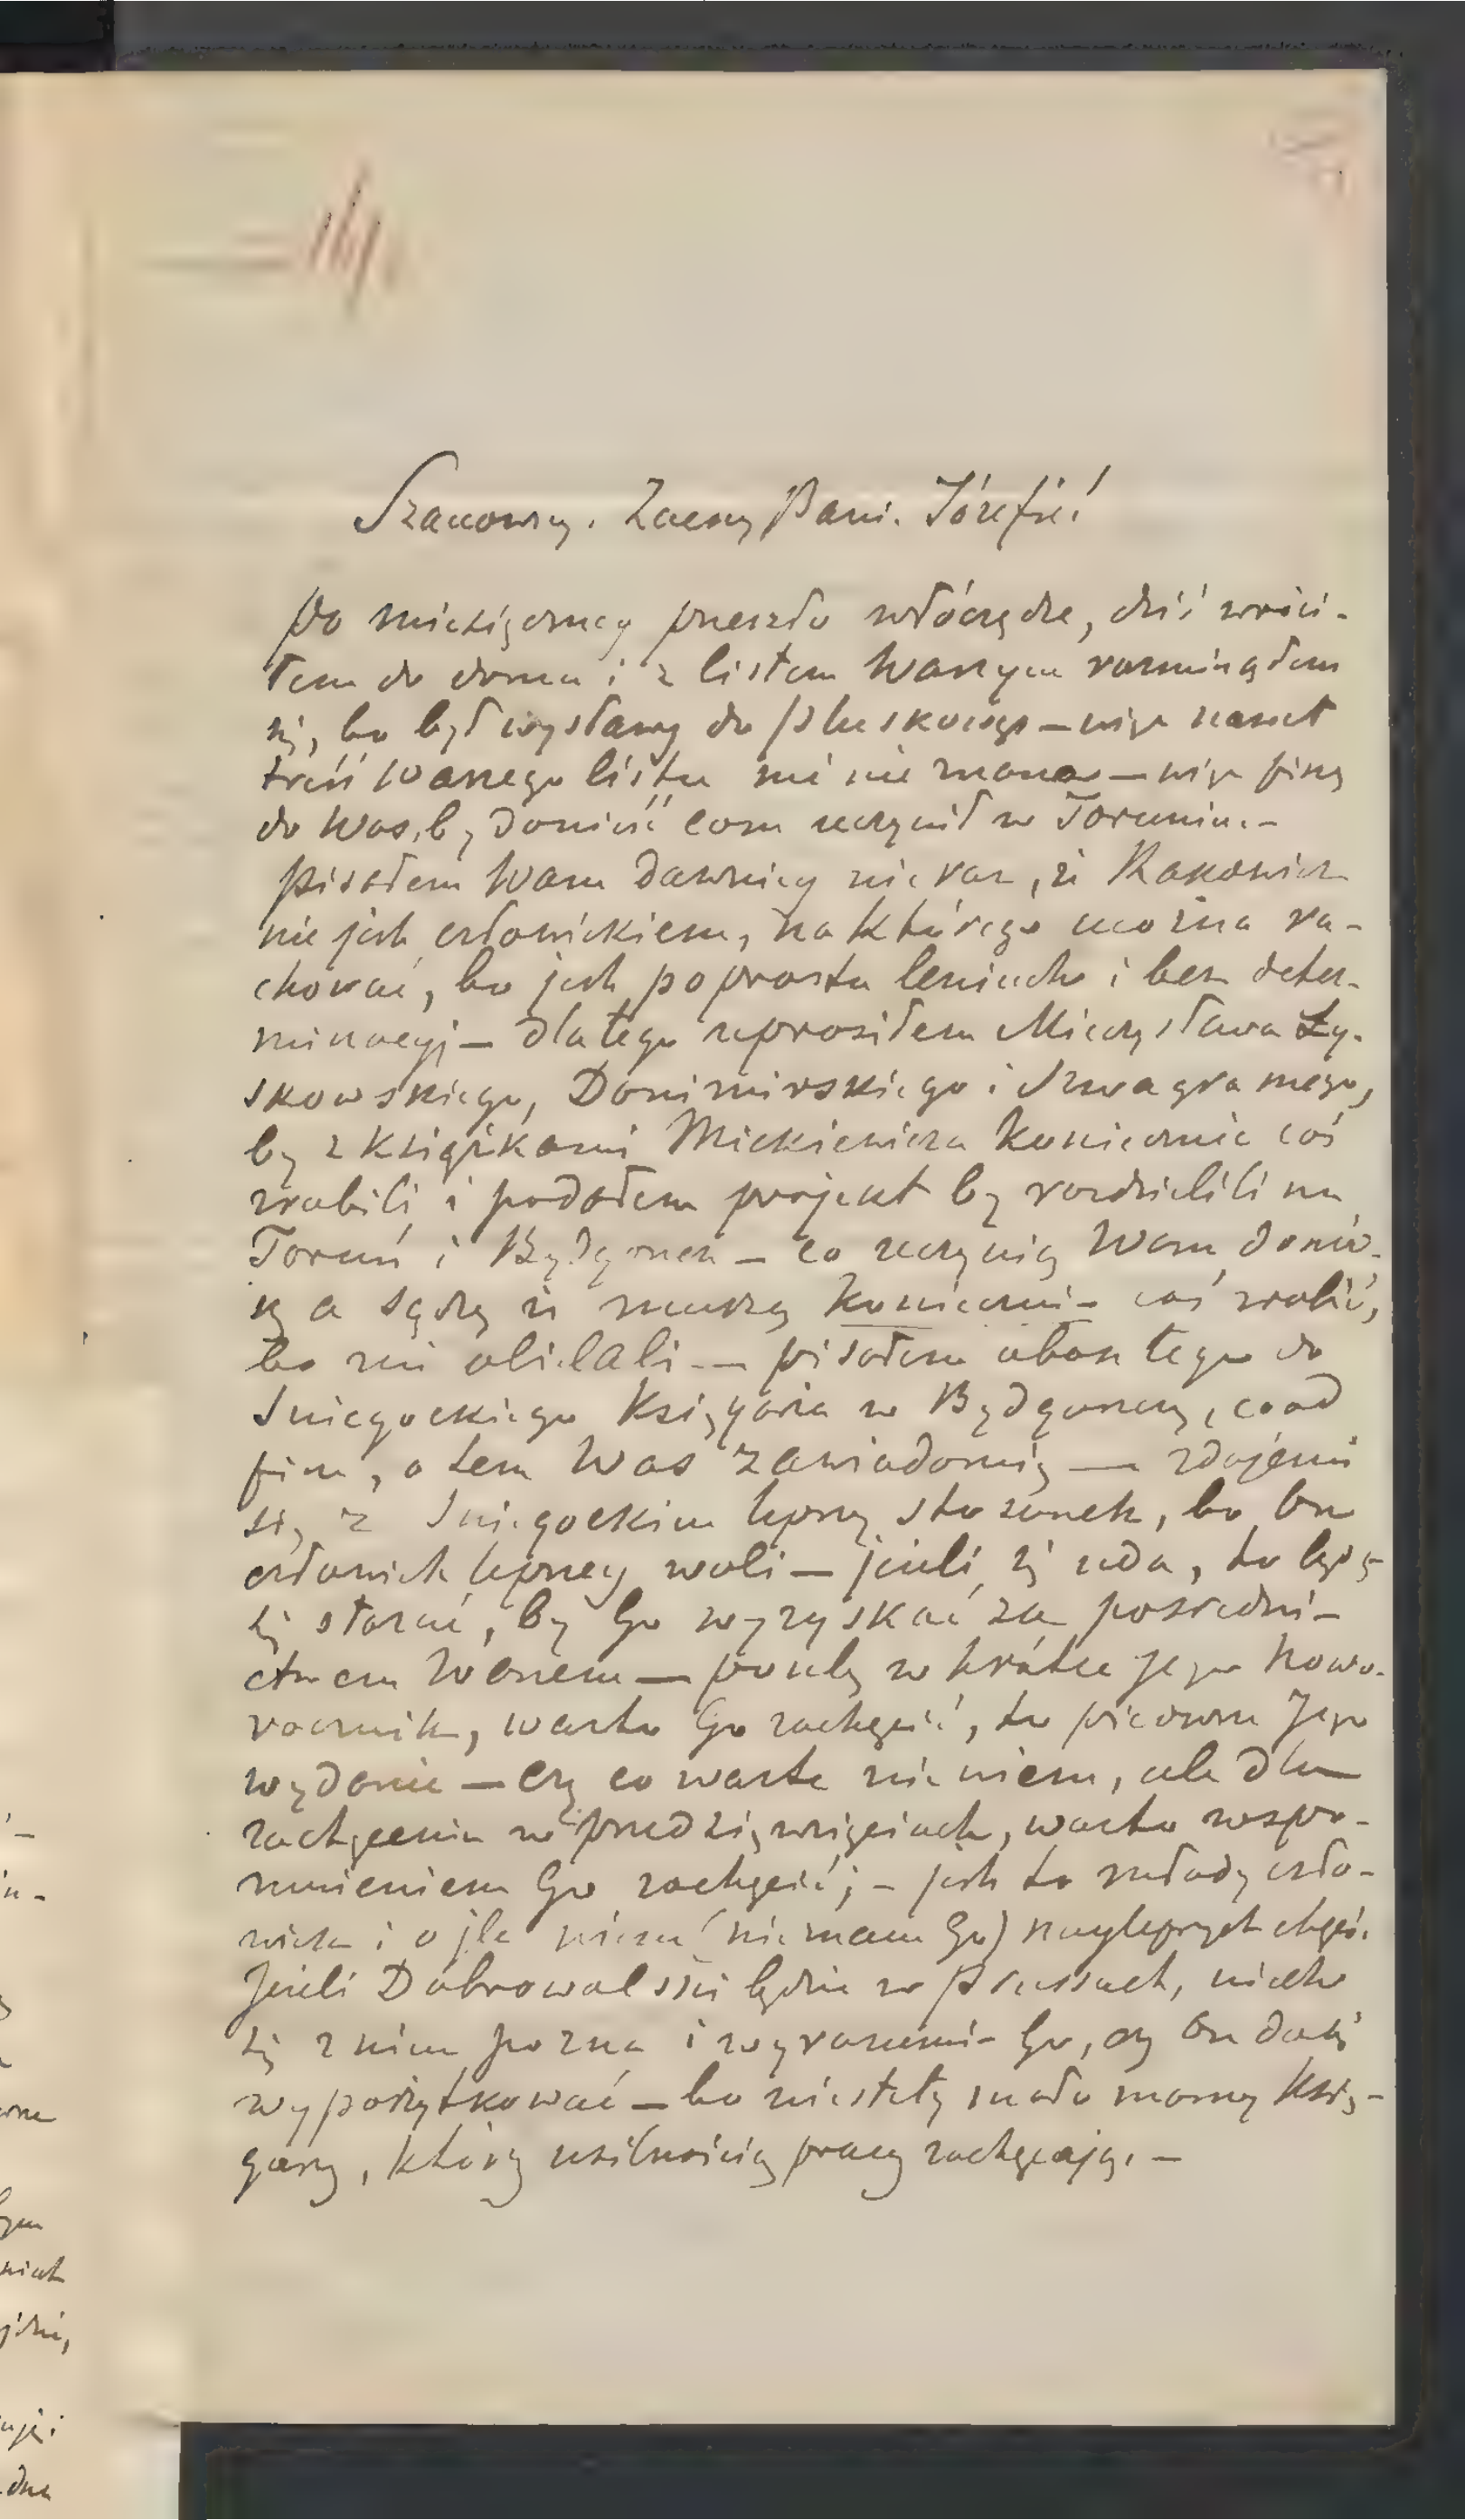 Szanowny. Zacny Panie. Józefie!
Po miesięcznej przeszło włóczędze, dziś wróci-
łem do domu i z listem Waszym rozminąłem
się, bo był wysłany do Pluskowęs – więc nawet
treść Waszego listu mi nie znana – więc piszę
do Was, by donieść com uczynił w Toruniu. –
Pisałem Wam dawniej nieraz, iż Rakowicz
nie jest człowiekiem, na którego można ra-
chować, bo jest poprostu leniuch i bez deter-
minacyj – dlatego uprosiłem Mieczysława Ły-
skowskiego, Donimirskiego i Szwagra mego,
by z książkami Mickiewicza koniecznie coś
zrobili i podałem projekt by rozdzielili na
Toruń i Bydgoszcz – co uczynią Wam donio-
są a sądzę iż muszą koniecznie coś zrobić,
bo mi obiecali. – pisałem obok tego do
Śniegockiego Księgarza w Bydgoszczy, co od
pisze, o tem Was zawiadomię – zdaje mi
się z Śniegockim lepszy stosunek, bo On
człowiek lepszej woli – jeżeli się uda, to będę
się starać, by Go wyzyskać za pośredni-
ctwem Waszem – poszlę w krótce Jego Nowo-
rocznik, warto Go zachęcić, to pierwsze Jego
wydanie – czy co warte nie wiem, ale dla
zachęcenia w przedsięwzięciach, warto wspo-
mnieniem Go zachęcić; – jest to młody czło-
wiek i o jle wiem (nie znam Go) najlepszych chęci.
Jeżeli Dobrowolski będzie w Prusach, niech
się z nim pozna i wyrozumie Go, czy On da się
wypożytkować – bo niestety mało mamy Księ-
garzy, którzy usilnością pracy zachęcają. –